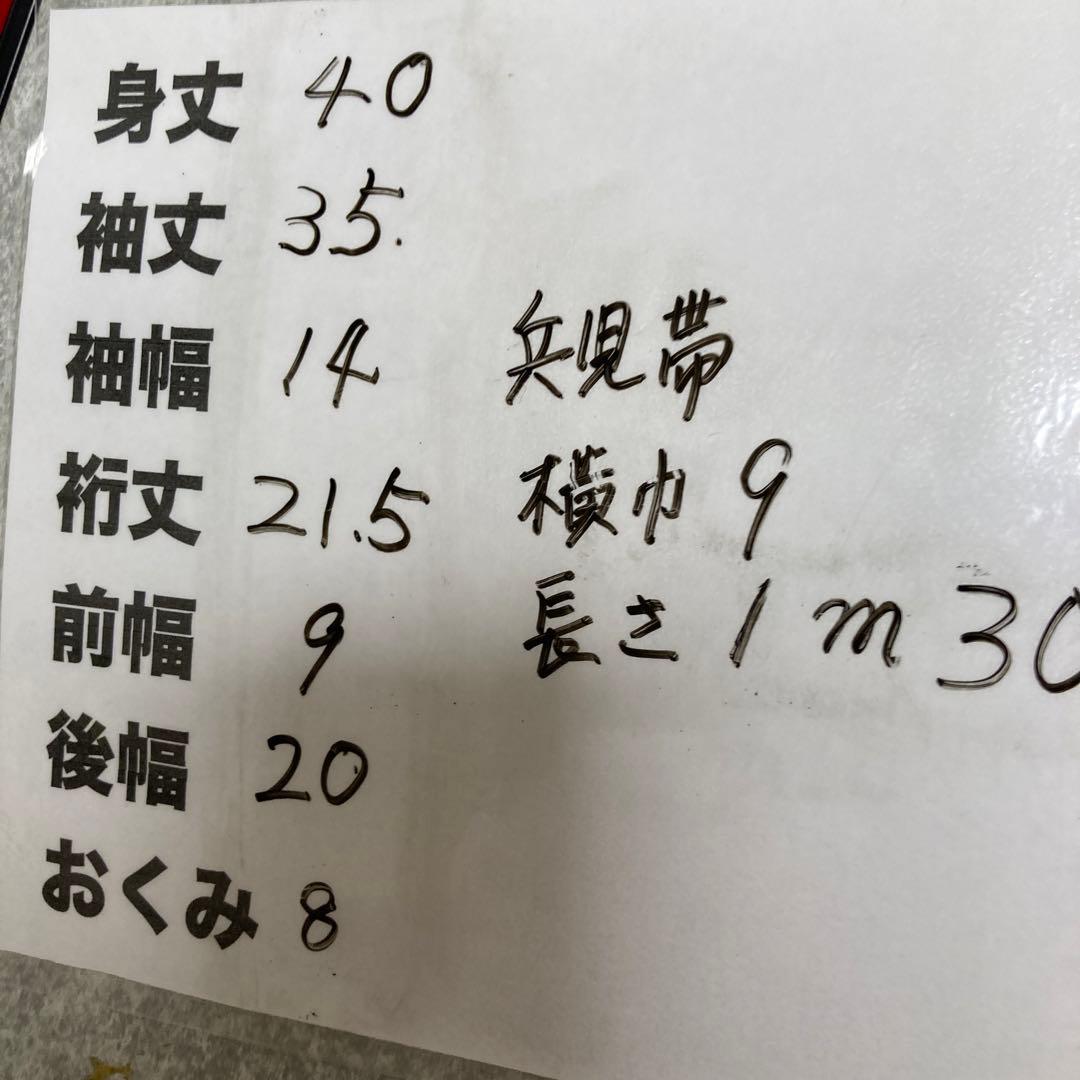 身丈 40
袖丈 35.
袖幅 14
裄丈 21.5
前幅 9
後幅 20
おくみ 8
兵児帯
横巾 9
長さ 1m30